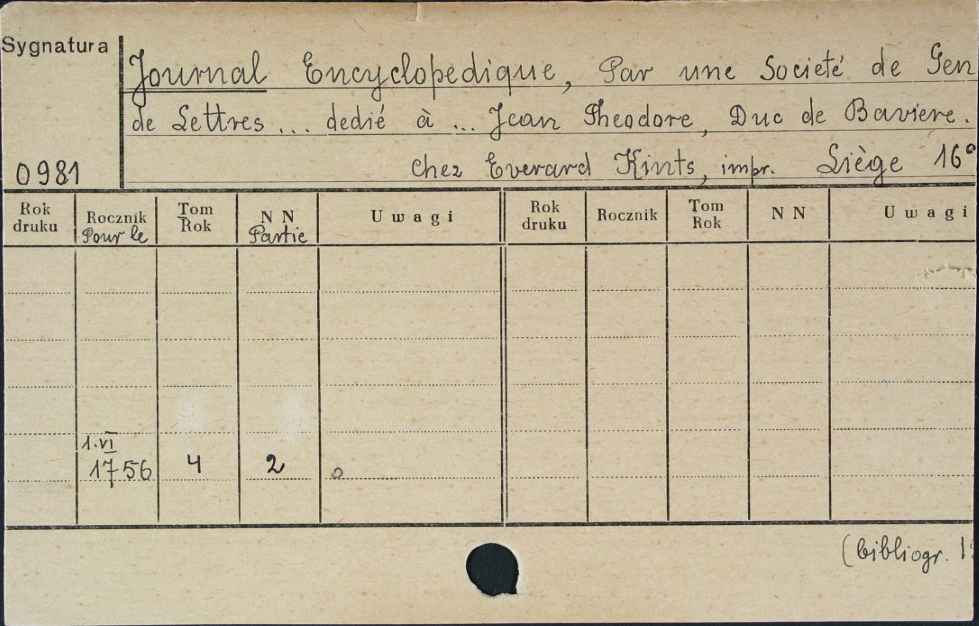 Sygnatura
Journal Encyclopedique, Par une Societé de Gen
de Lettres ... dedié à ... Jean Theodore, Duc de Baviere.
0981 Chez Everard Kints, impr. Liège 16°
Rok druku Rocznik Pour le Tom Rok NN Partie Uwagi Rok druku Rocznik Tom Rok NN Uwagi
1.VI
1756 4 2 o
(bibliogr. 1